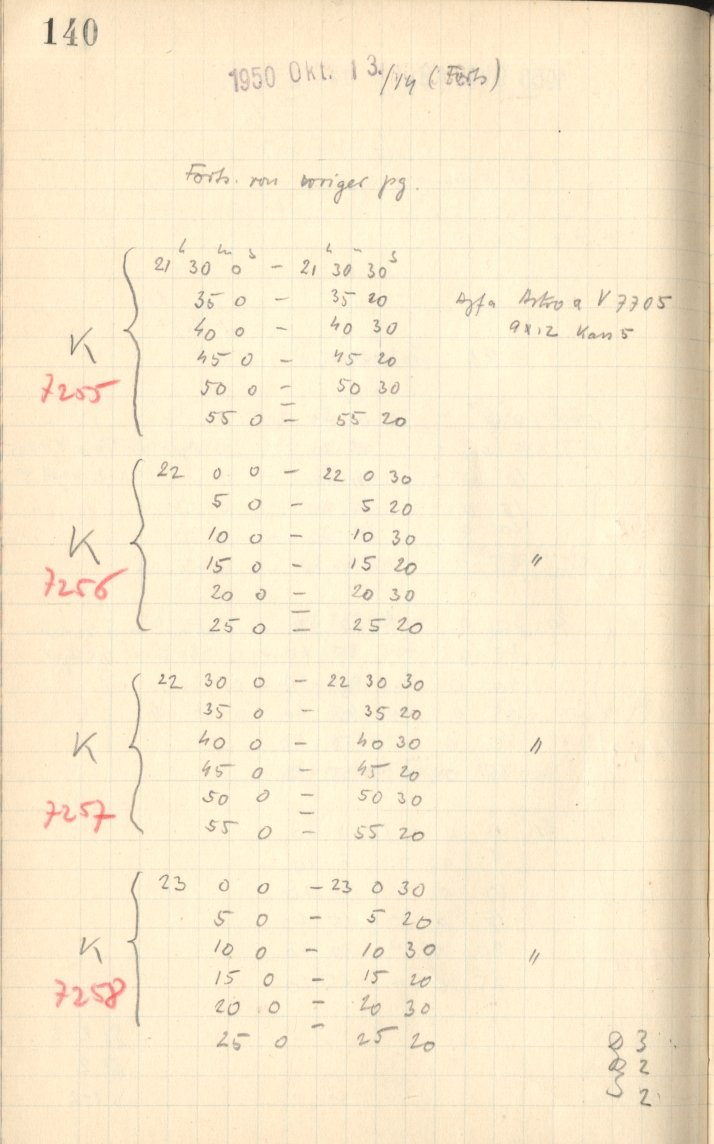 140
1950 Okt. 13./14 (Forts)
Forts. von voriger pg.
21 h 30 m 0 s - 21 h 30 m 30 s
35 0 - 35 20 Agfa Astro a V 7705
40 0 - 40 30 9x12 Kass 5
K
45 0 - 45 20
7255
50 0 - 50 30
55 0 - 55 20
22 0 0 - 22 0 30
5 0 - 5 20
10 0 - 10 30
K
15 0 - 15 20 "
7256
20 0 - 20 30
25 0 - 25 20
22 30 0 - 22 30 30
35 0 - 35 20
K 40 0 - 40 30 "
45 0 - 45 20
50 0 - 50 30
7257
55 0 - 55 20
23 0 0 - 23 0 30
5 0 - 5 20
K 10 0 - 10 30 "
15 0 - 15 20
7258
20 0 - 20 30
25 0 - 25 20
3
2
S 2